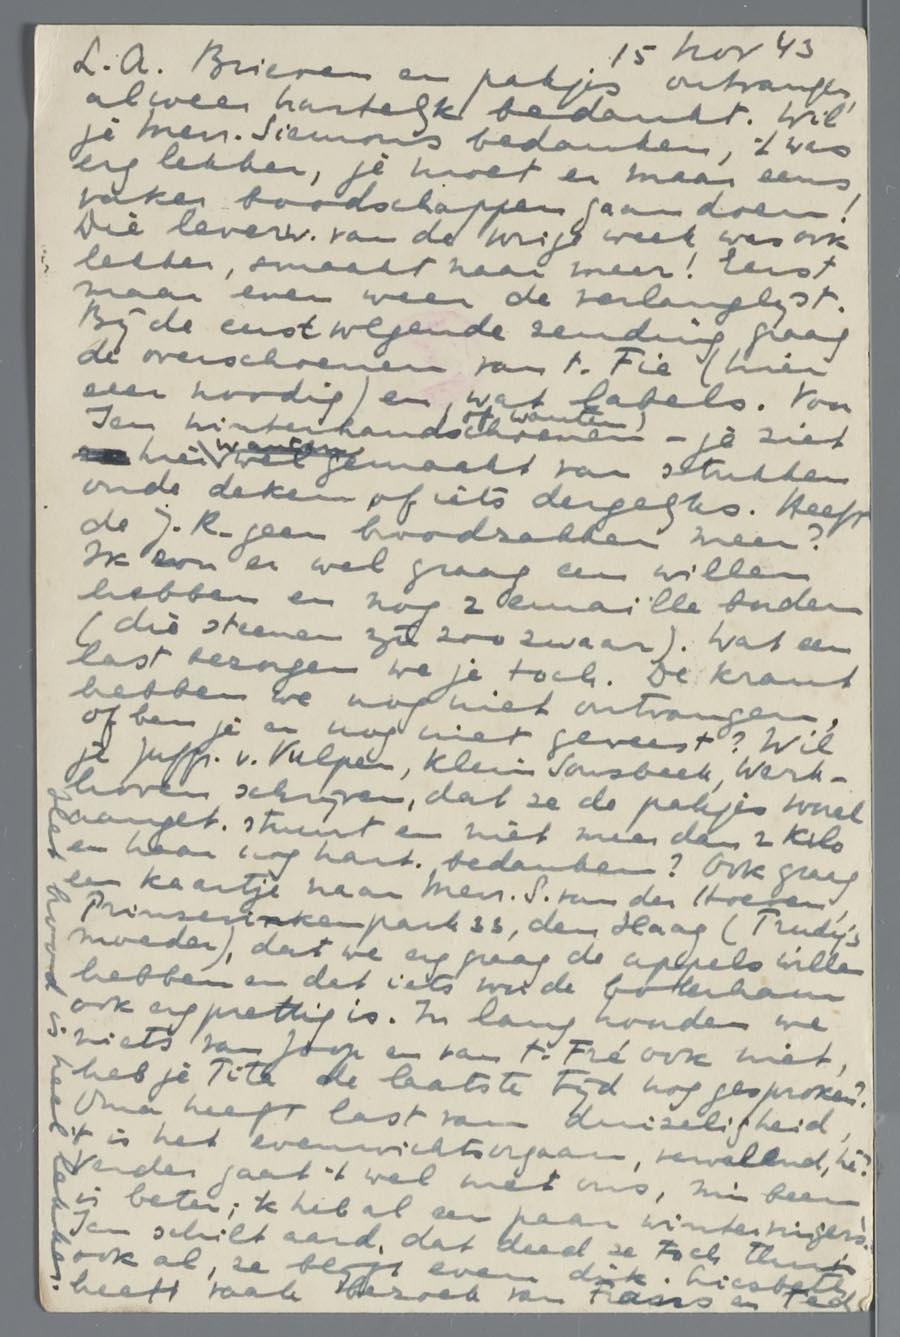 15 Nov 43
L.A. Brieven en pakjes ontvangen,
alweer hartelijk bedankt. Wil
je Mevr. Siemons bedanken, 't was
erg lekker, je moet er maar eens
vaker boodschappen gaan doen!
Die leverw. van de vorige week was ook
lekker, smaakt naar meer! Eerst
maar even weer de verlanglijst.
Bij de eerstvolgende zending graag
de overschoenen van t. Fie (hier
zeer noodig) en wat labels. Voor
Jan winterhandschoenen (of wanten) - je ziet
hier wel wanten gemaakt van stukken
oude deken of iets dergelijks. Heeft
de J.R. geen broodzakken meer?
Ik zou er wel graag een willen
hebben en nog 2 emaille borden
(die steenen zijn zoo zwaar). Wat een
last bezorgen we je toch. De krant
hebben we nog niet ontvangen,
of ben je er nog niet geweest? Wil
je Juffr. v. Vulpen, Klein Sonsbeek, Werk-
hoven schrijven, dat ze de pakjes vooral
aanget. stuurt en niet meer dan 2 kilo
en haar nog hart. bedanken? Ook graag
een kaartje naar Mevr. S. van der Hoeven,
Prinsevinkenpark 33, den Haag (Trudy's
moeder), dat we erg graag de appels willen
hebben en dat iets voor de boterham
ook erg prettig is. In lang hoorden we
niets van Joop en van t. Fré ook niet,
heb je Tita de laatste tijd nog gesproken?
Oma heeft last van duizeligheid,
't is het evenwichtsorgaan, vervelend, hè?
Verder gaat 't wel met ons, mijn been
is beter; 'k heb al een paar wintervingers!
Jan schilt aard., dat deed ze toch thuis
ook al, ze blijft even dik. Liesbeth
heeft vaak bezoek van Frans en Ted
Het brood is heel lekker.